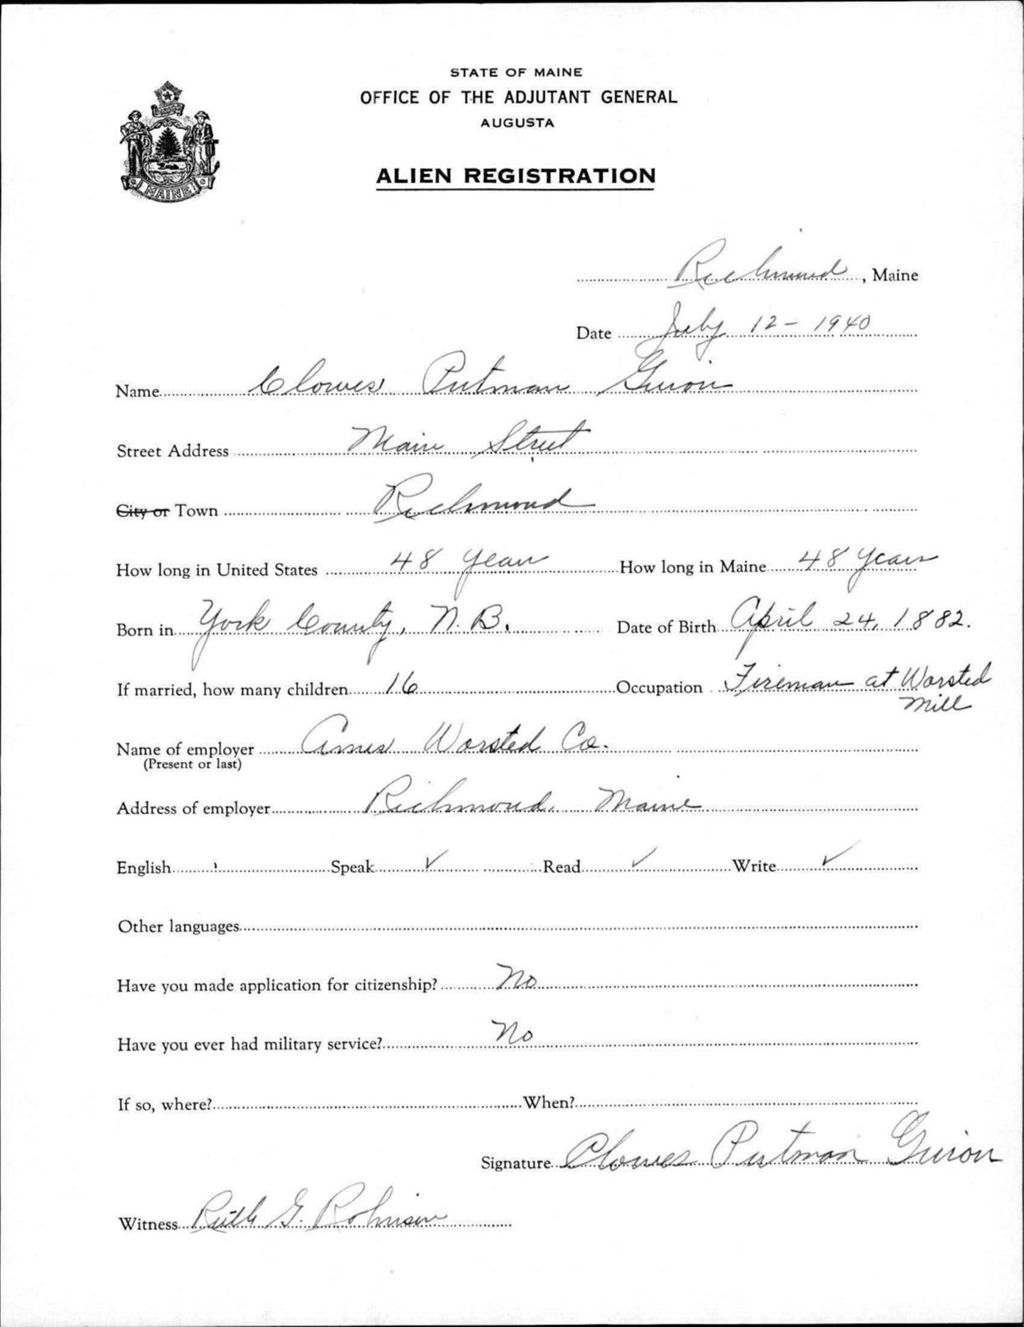 STATE OF MAINE
OFFICE OF THE ADJUTANT GENERAL
AUGUSTA
ALIEN REGISTRATION
MAINE
Richmond, Maine
Date July 12-1940
Name Clowes Putman Guion
Street Address Main Street
City or Town Richmond
How long in United States 48 years How long in Maine 48 years
Born in York County, N.B. Date of Birth April 24, 1882.
If married, how many children 16 Occupation Fireman at Worsted
Mill
Name of employer Ames Worsted Co.
(Present or last)
Address of employer Richmond, Maine
English Speak ✓ Read ✓ Write ✓
Other languages
Have you made application for citizenship? No
Have you ever had military service? No
If so, where? When?
Signature Clowes Putman Guion
Witness Ruth G. Robinson